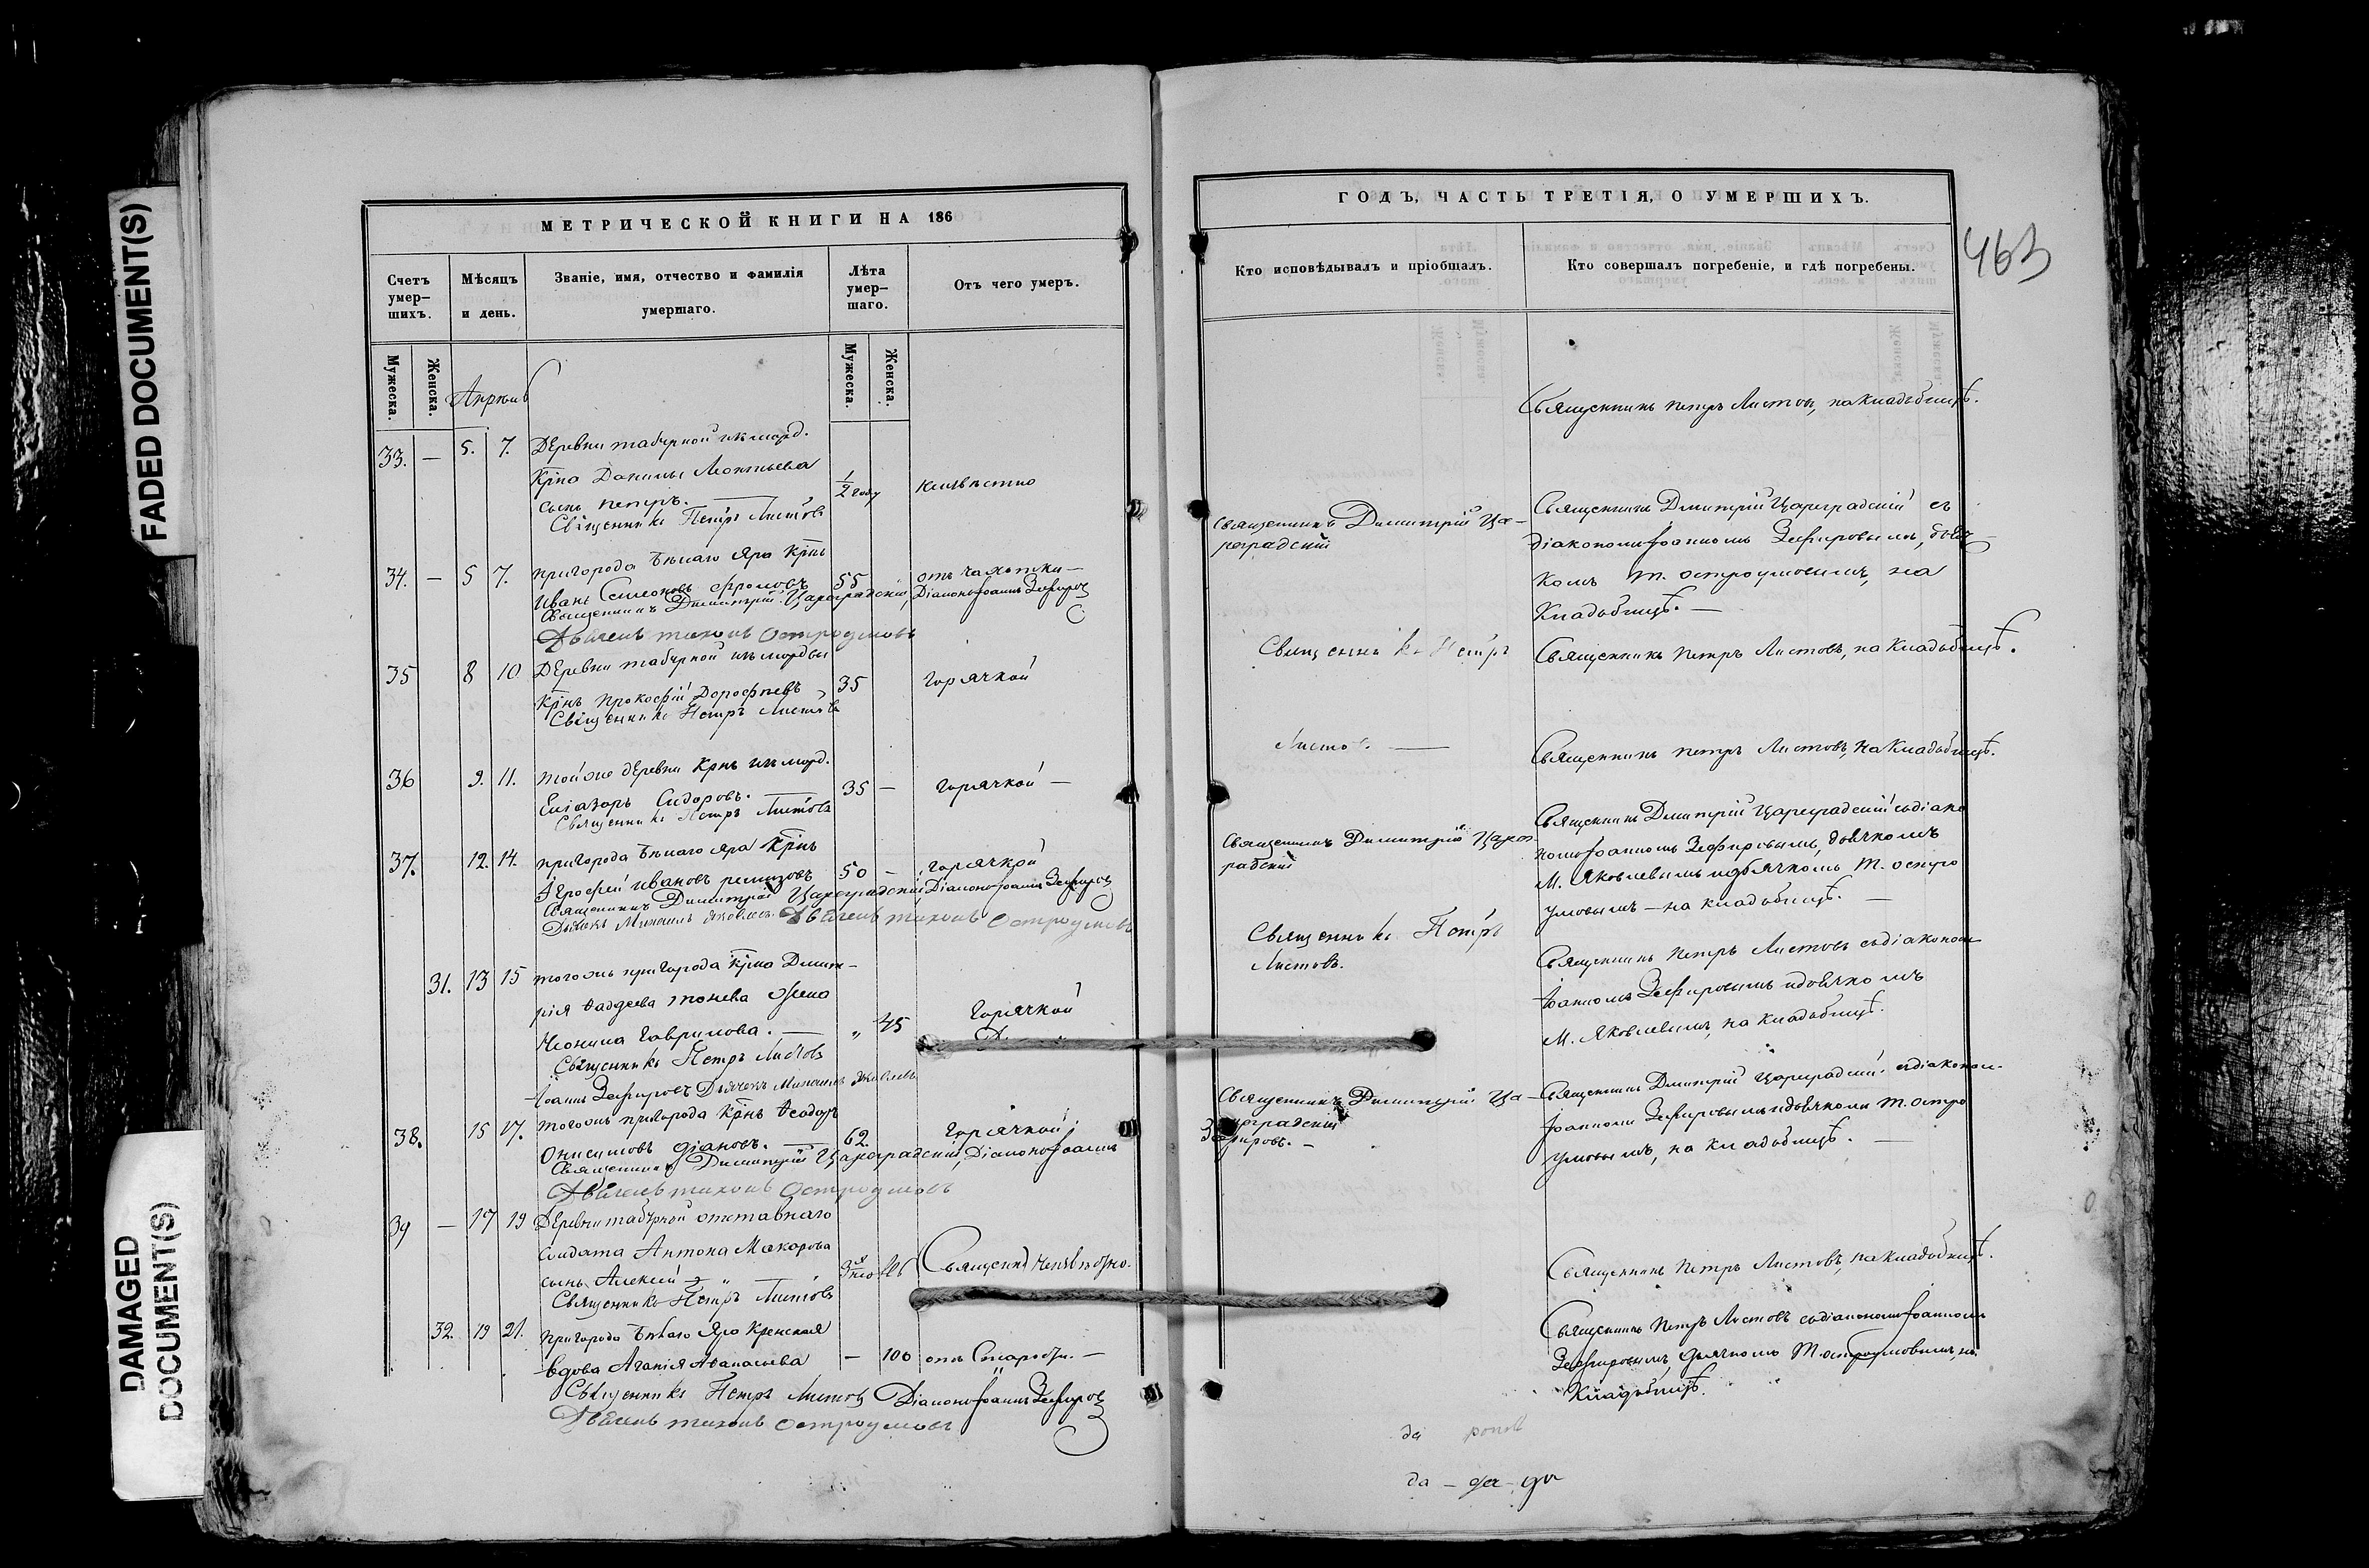 FADED DOCUMENT(S)
DAMAGED
DOCUMENT(S)
МЕТРИЧЕСКОЙ КНИГИ НА 186
Счетъ умер-шихъ.
Мѣсяцъ и день.
Званіе, имя, отчество и фамилія умершаго.
Лѣта умер-шаго.
Отъ чего умеръ.
Мужеска.
Женска.
Мужеска.
Женска.
Апрѣль
33. — 5. 7. Деревни табурной изъ морд.
Крна Данилы Леонтьева
сынъ петръ. — 1/2 году неизвѣстно
Священникъ Петръ Листовъ
34. — 5 7. пригорода Бѣлаго Яра Крнъ
Иванъ Семеновъ 55 отъ чахотки —
Священникъ Димитрій Цареградскій, Діаконъ Іоаннъ Зефировъ
Дьячекъ тихонъ Остроумовъ
35 8 10 Деревни табурной изъ мордвы
Крнъ Прокофій Дорофеевъ 35 горячкой
Священникъ Петръ Листовъ
36 9. 11. той же деревни Крнъ изъ морд.
Еліазаръ Сидоровъ. — 35 — горячкой —
Священникъ Петръ Листовъ
37. 12. 14. пригорода Бѣлаго яра Крнъ
Ерофей Ивановъ 50 — горячкой
Священникъ Димитрій Цареградскій, Діаконъ Іоаннъ Зефировъ
Дьячекъ Михаилъ Яковлевъ Дьячекъ тихонъ Остроумовъ
31. 13 15 тогожъ пригорода Крна Дмит-
рія Фаддеева жена
Неонила Гаврилова. — „ 45 Горячкой
Священникъ Петръ Листовъ
Іоаннъ Зефировъ Дьячекъ Михаилъ Яковлевъ
38. 15 17. тогожъ пригорода Крнъ Феодоръ
Онисимовъ 62. горячкой
Священникъ Димитрій Цареградскій, Діаконъ Іоаннъ
Дьячекъ тихонъ Остроумовъ
39 — 17 19 Деревни табурной отставнаго
солдата Антона Макарова
сынъ Алексій
Священникъ Петръ Листовъ
32. 19 21. Пригорода Бѣлаго Яра Кренская
вдова Агапія Аванасьева — 100 отъ Старости. —
Священникъ Петръ Листовъ Діаконъ Іоаннъ Зефировъ
Дьячекъ тихонъ Остроумовъ
ГОДЪ, ЧАСТЬ ТРЕТІЯ, О УМЕРШИХЪ.
463
Кто исповѣдывалъ и пріобщалъ.
Кто совершалъ погребеніе, и гдѣ погребены.
Священникъ петръ Листовъ, на кладбищѣ.
Священникъ Димитрій Ца-
реградскій
Священникъ Дмитрій Цареградскій съ
діакономъ Іоанномъ Зефировымъ, дьяч-
комъ Т. остроумовымъ, на
Кладбищѣ. —
Священникъ Петръ
Священникъ петръ Листовъ, на Кладбищѣ.
Листовъ. —
Священникъ петръ Листовъ, на Кладбищѣ.
Священникъ Димитрій Царег
радскій
Священникъ Дмитрій Цареградскій съ діако
номъ Іоанномъ Зефировымъ, дьячкомъ
М. Яковлевымъ и дьячкомъ Т. остро
умовымъ — на кладбищѣ. —
Священникъ Петръ
Листовъ.
Священникъ петръ Листовъ съ діакономъ
Іоанномъ Зефировымъ и дьячкомъ
М. Яковлевымъ, на кладбищѣ.
Священникъ Димитрій Ца-
реградскій
Зефировъ. —
Священникъ Дмитрій Цареградскій съ діаконом-
Іоанномъ Зефировымъ и дьячкомъ Т. Остро
умовымъ, на кладбищѣ. —
Священникъ Петръ Листовъ, на кладбищѣ.
Священникъ Петръ Листовъ съ діакономъ Іоанномъ
Зефировымъ, дьячкомъ Т. остроумовымъ, на
Кладбищѣ.
да
да — да — да